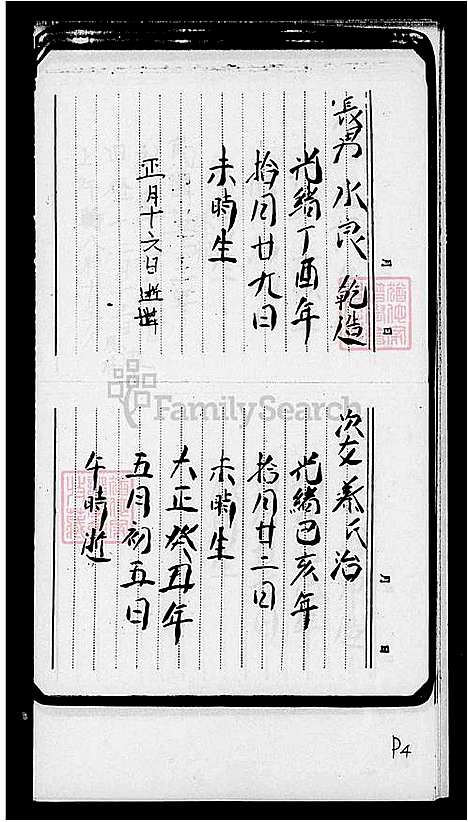 長男 水良 乾造
光緒丁酉年
拾月廿九日
未時生
正月十六日逝世
次女 蔡氏治
光緒己亥年
拾月廿二日
未時生
大正癸丑年
五月初五日
午時逝
FamilySearch
P4